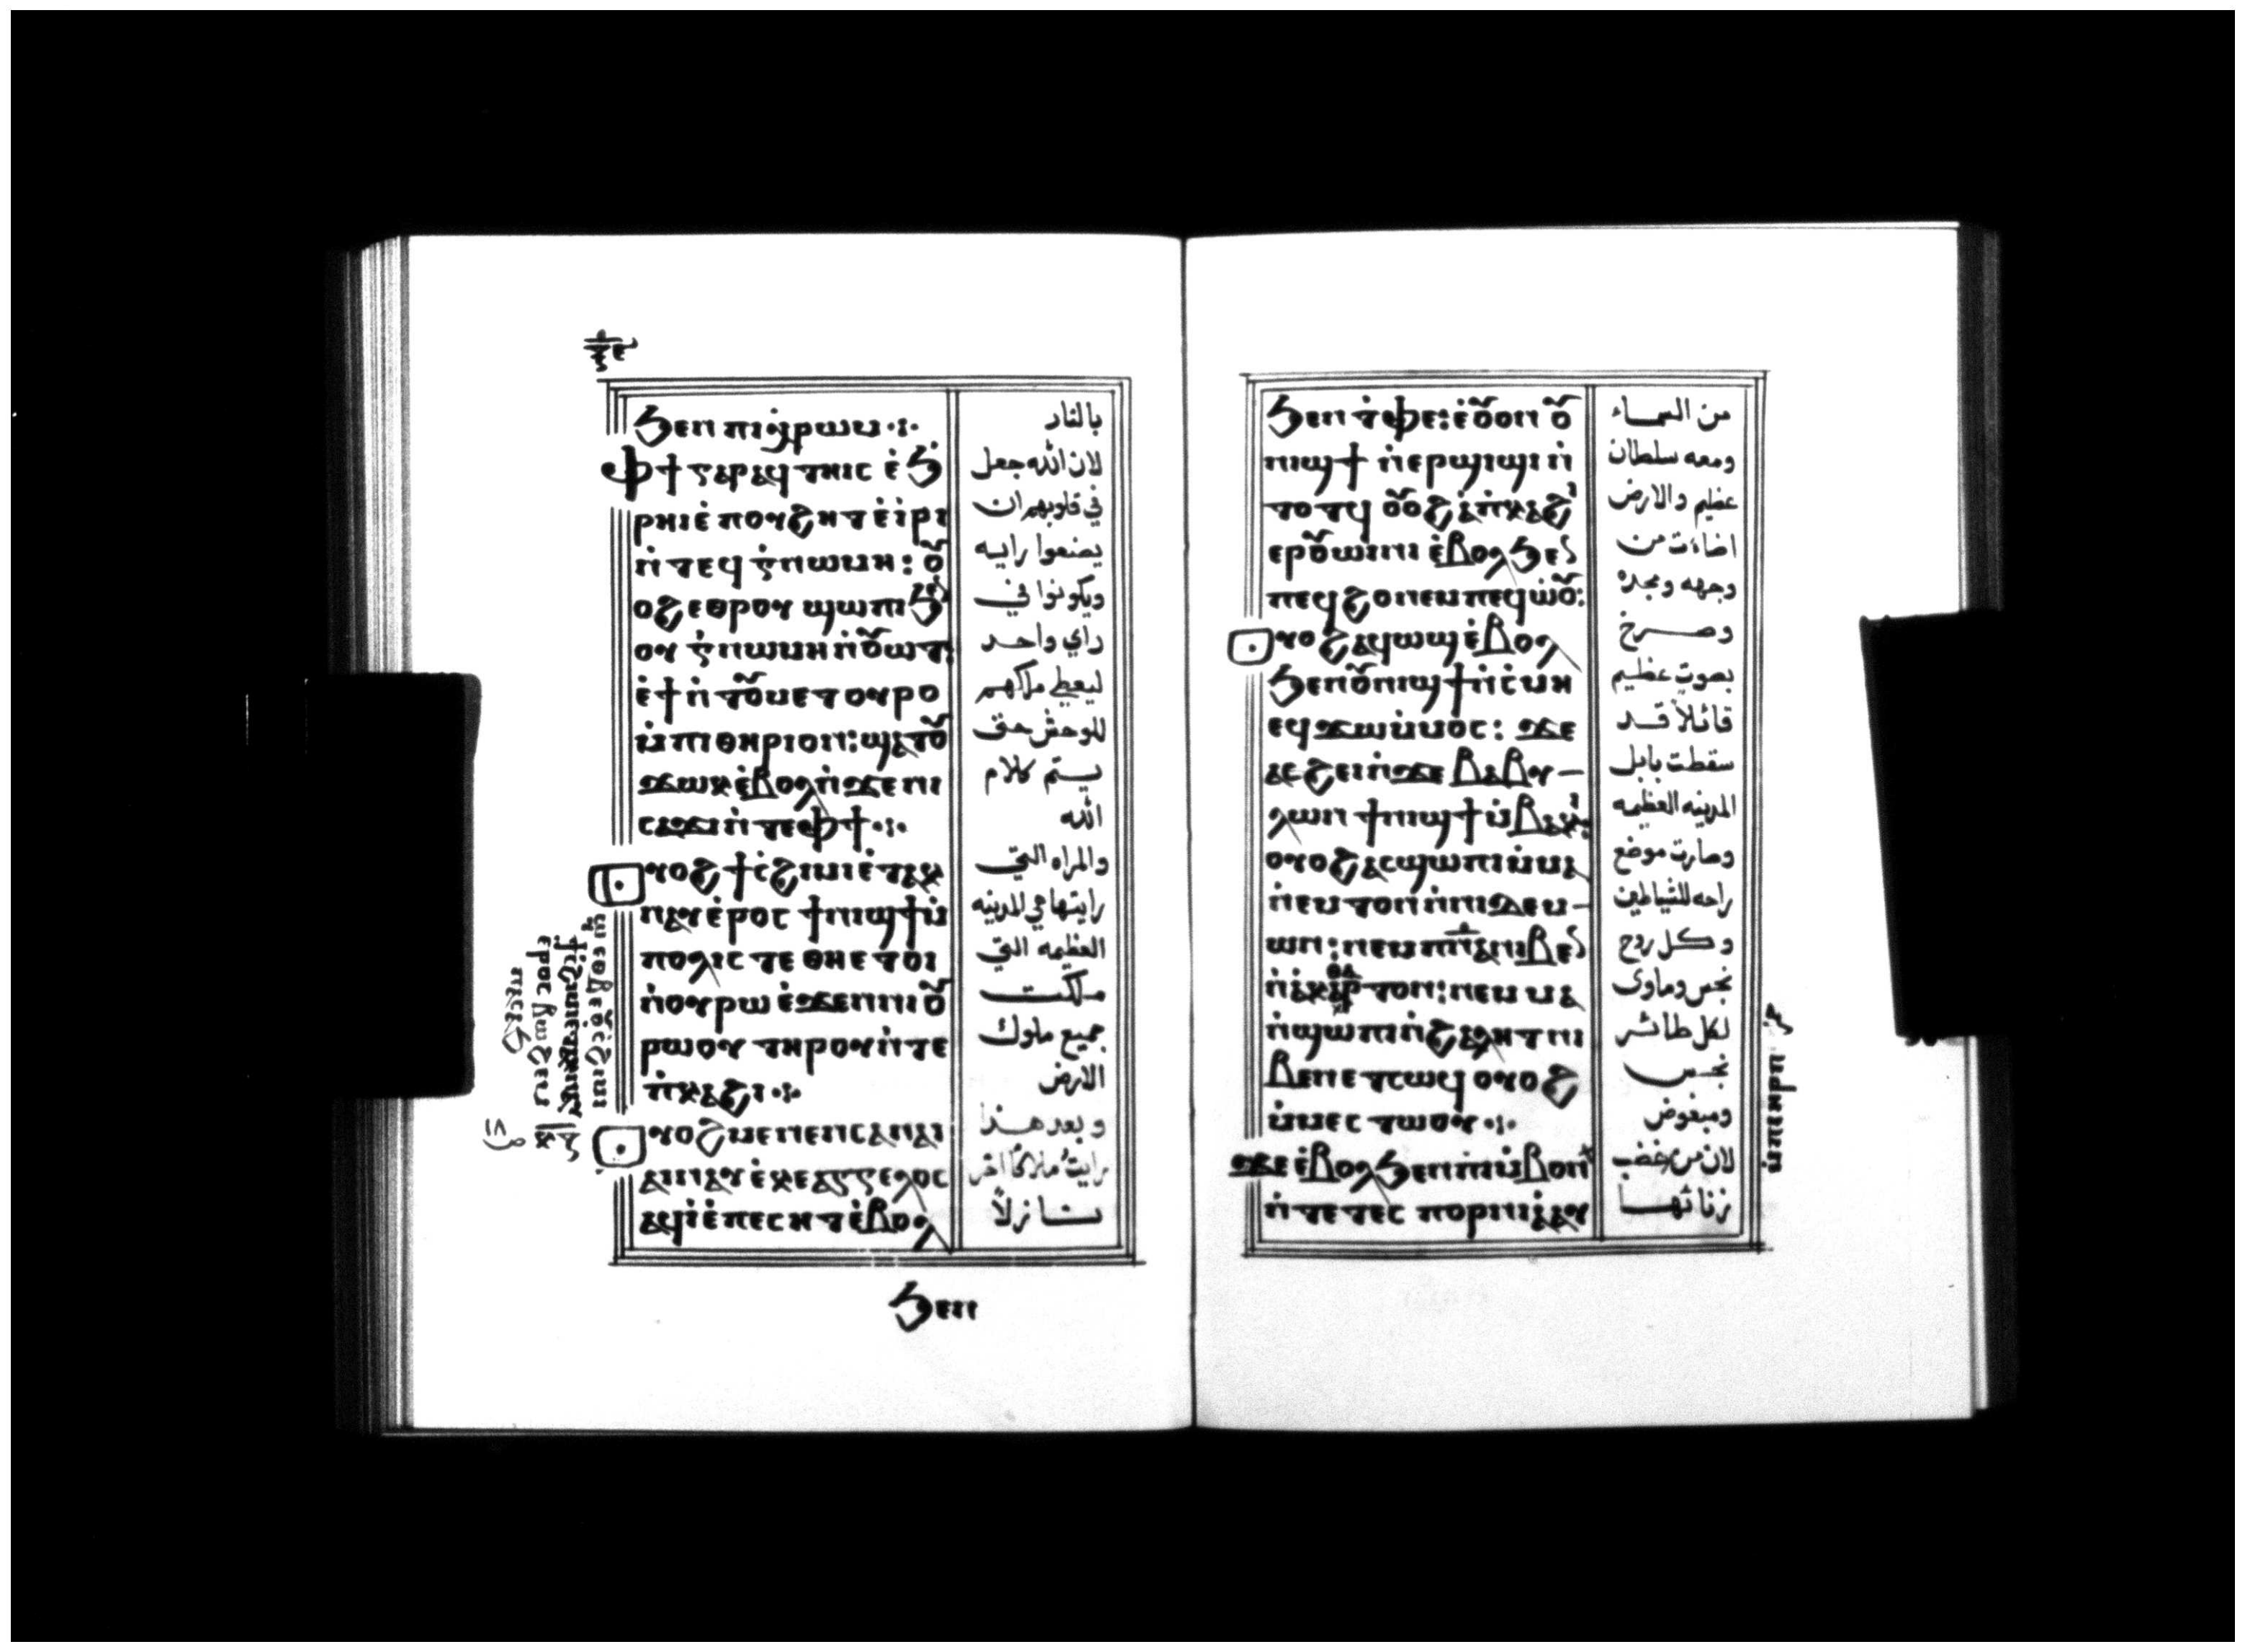 ϧⲉⲛ ⲡⲓⲭ̀ⲣⲱⲙ
ⲫϯ ⲅⲁⲣ ⲁϥⲧⲏⲓⲥ ⲉ̀ϧ
ⲣⲏⲓ ⲉ̀ⲡⲟⲩϩⲏⲧ ⲉ̀ⲓⲣⲓ
ⲛ̀ⲧⲉϥⲅ̀ⲛⲱⲙⲏ:
ⲟϩ ⲉⲑⲣⲟⲩϣⲱⲡⲓ
ⲟⲩⲅ̀ⲛⲱⲙⲏ ⲛ̀ⲟⲩⲱⲧ
ⲉ̀ϯ ⲛ̀ⲧⲟⲩⲙⲉⲧⲟⲩⲣⲟ
ⲙ̀ⲡⲓⲑⲏⲣⲓⲟⲛ: ϣⲁⲧⲟⲩ
ϫⲱⲕ ⲉ̀ⲃⲟⲗ ⲛ̀ϫⲉⲛⲓ
ⲥⲁϫⲓ ⲛ̀ⲧⲉⲫϯ
ⲟⲩⲟϩ ϯⲥ̀ϩⲓⲙⲓ ⲉ̀ⲧⲁⲕ
ⲛⲁⲩ ⲉ̀ⲣⲟⲥ ϯⲛⲓϣϯ ⲙ̀
ⲡⲟⲗⲓⲥ ⲧⲉ ⲑⲏⲉⲧⲟⲓ
ⲛ̀ⲟⲩⲣⲱ ⲉ̀ϫⲉⲛ ⲛⲓⲟⲩ
ⲣⲱⲟⲩ ⲧⲏⲣⲟⲩ ⲛ̀ⲧⲉ
ⲡ̀ⲕⲁϩⲓ
ⲟⲩⲟϩ ⲙⲉⲛⲉⲛⲥⲁ ⲛⲁⲓ
ⲁⲓⲛⲁⲩ ⲉ̀ⲕⲉⲁⲅⲅⲉⲗⲟⲥ
ⲁϥⲓ̀ ⲉ̀ⲡⲉⲥⲏⲧ ⲉ̀ⲃⲟⲗ
ϧⲉⲛ
بالنار
لان الله جعل
في قلوبهم ان
يصنعوا رايه
ويكونوا في
راي واحد
ليعطي ملكهم
للوحش حتى
يتم كلام
الله
والمراه التي
رايتها هي المدينه
العظيمه التي
ملكت
جميع ملوك
الارض
وبعد هذا
رايت ملاكًا اخر
نازلاً
ϧⲉⲛ ⲧ̀ⲫⲉ: ⲉ̀ⲟⲩⲟⲛ ⲟⲩ
ⲛⲓϣϯ ⲛ̀ⲉⲣϣⲓϣⲓ ⲛ̀
ⲧⲟⲧϥ ⲟⲩⲟϩ ⲁ̀ⲡ̀ⲕⲁϩⲓ
ⲉⲣⲟⲩⲱⲓⲛⲓ ⲉ̀ⲃⲟⲗ ϧⲉⲛ
ⲡⲉϥϩⲟ ⲛⲉⲙ ⲡⲉϥⲱ̀ⲟⲩ:
ⲟⲩⲟϩ ⲁϥⲱϣ ⲉ̀ⲃⲟⲗ
ϧⲉⲛ ⲟⲩⲛⲓϣϯ ⲛ̀ⲥ̀ⲙⲏ
ⲉϥϫⲱ ⲙ̀ⲙⲟⲥ: ϫⲉ
ⲁⲥϩⲉⲓ ⲛ̀ϫⲉ ⲃⲁⲃⲩ
ⲗⲱⲛ ϯⲛⲓϣϯ ⲙ̀ⲃⲁⲕⲓ
ⲟⲩⲟϩ ⲁⲥϣⲱⲡⲓ ⲙ̀ⲙⲁ
ⲛ̀ⲉⲙⲧⲟⲛ ⲛ̀ⲛⲓⲇⲉⲙ
ⲱⲛ: ⲛⲉⲙ ⲡ̅ⲛ̅ⲁ̅ ⲛⲓⲃⲉⲛ
ⲛ̀ⲁ̀ⲕⲁⲑⲁⲣⲧⲟⲛ: ⲛⲉⲙ ⲙⲁ
ⲛ̀ϣⲱⲡⲓ ⲛ̀ϩⲁⲗⲏⲧ ⲛⲓ
ⲃⲉⲛ ⲉⲧⲥⲱϥ ⲟⲩⲟϩ
ⲙ̀ⲙⲉⲥⲧⲱⲟⲩ
ϫⲉ ⲉ̀ⲃⲟⲗ ϧⲉⲛ ⲡⲓⲙ̀ⲃⲟⲛ
ⲛ̀ⲧⲉ ⲧⲉⲥⲡⲟⲣⲛⲓⲁ
من السماء
ومعه سلطان
عظيم والارض
اضاءت من
وجهه ومجده
وصرخ
بصوت عظيم
قائلاً قد
سقطت بابل
المدينه العظيمه
وصارت موضع
راحه للشياطين
وكل روح
نجس وماوى
لكل طائر
نجس
ومبغوض
لان من غضب
زنائها